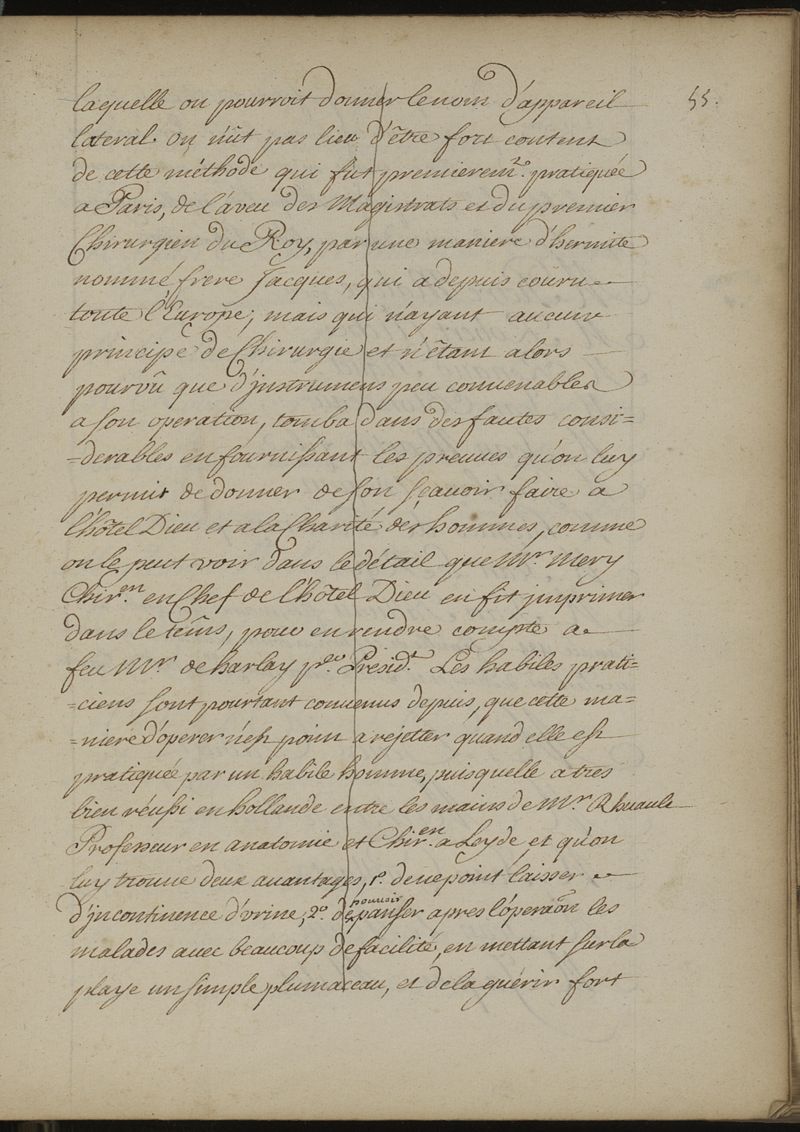 55.
laquelle on pourroit donner le nom d'appareil
lateral. on n'ût pas lieu d'être fort content
de cette méthode qui fut premierem.t pratiquée
a Paris, de l'aveu des Magistrats et du premier
Chirurgien du Roy, par une maniere d'hermitte
nommé frere Jacques, qui a depuis couru
toute l'Europe; mais qui n'ayant aucun
principe de Chirurgie et n'étant alors
pourvû que d'jnstrumens peu convenables
a son operation, tomba dans des fautes consi=
=derables en fournissant les preuves qu'on luy
permit de donner de son sçavoir faire a
l'hôtel Dieu et a la Charité des hommes, comme
on le peut voir dans le détail que Mr. Mery
Chir.en en Chef de l'hôtel Dieu en fit jmprimer
dans le tems, pour en rendre compte a
feu Mr. de harlay p.er Présid.t Les habiles prati=
=ciens sont pourtant convenus depuis, que cette ma=
=niere d'opérer n'est point a rejetter quand elle est
pratiquée par un habile homme, puisquelle a tres
bien réussi en hollande entre les mains de Mr. Rhuaule
Professeur en anatomie et Chir.en a Leyde et qu'on
luy trouve deux avantages, 1º. de ne point laisser
d'jncontinence d'vrine, 2º. de pouvoir panser apres l'operaõn les
malades avec beaucoup de facilité, en mettant sur la
playe un simple plumaceau, et de la guérir fort